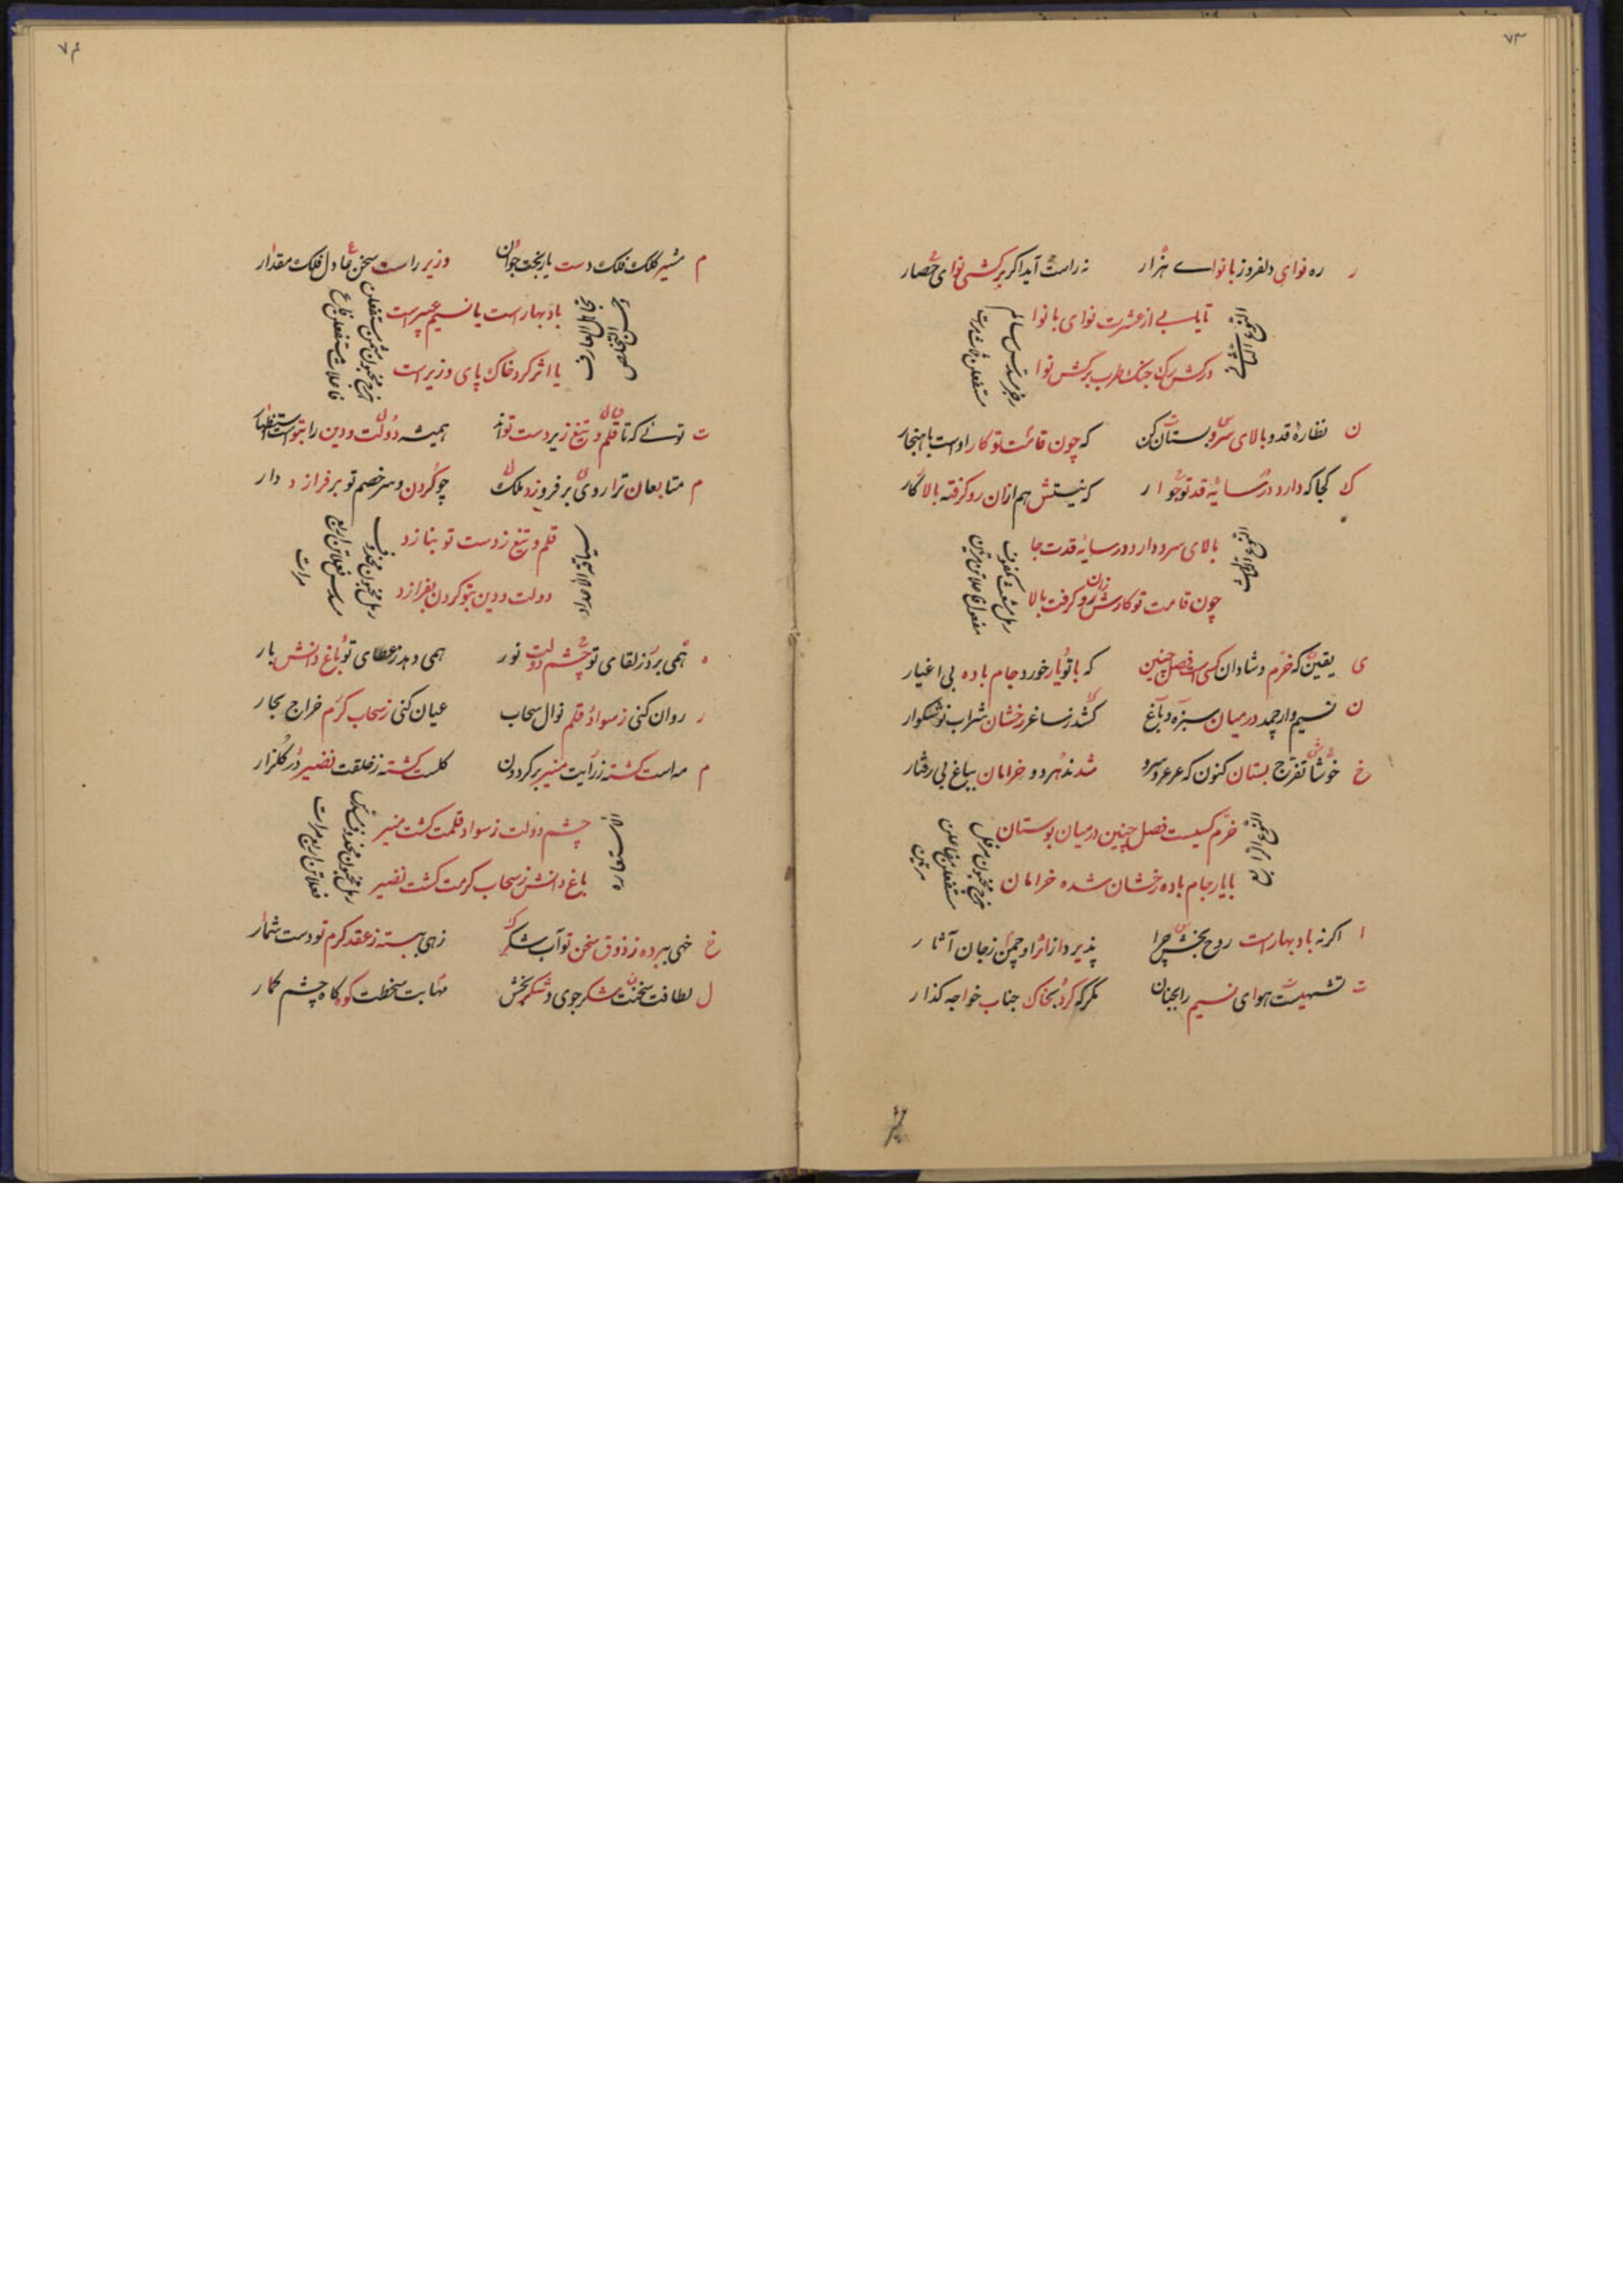 ۷۳
ر ره نوای دلفروز با نوای هزار نه راست آید اگر برکشی نوای حصار
تا یابی از عشرت نوای با نوا
درکش رگ چنگ طرب برکش نوا
رجز مسدس سالم
مستفعلن ثلاث مرات
ن نظارهٔ قد و بالای سرو بستان کن که چون قامت تو کار اوست باهنجار
ک کجا که دارد در سایهٔ قد تو جوار که نیستش هم ازان رو گرفته بالا کار
بالای سرو دارد در سایهٔ قدت جا
چون قامت تو کارش زان رو گرفت بالا
مفعول فاعلاتن مرتین
ی یقین که خرم و شادان کسی است فصل چنین که با تو یار خورد جام باده بی اغیار
ن نسیم وار چمد در میان سبزه و باغ کشد ز ساغر رخشان شراب نوشگوار
خ خوشا تفرج بستان کنون که عرعر و سرو شدند هر دو خرامان بباغ بی رفتار
خرم کسیست فصل چنین در میان بوستان
با یار جام باده رخشان شده خرامان
مستفعلن مفاعلن
مرتین
ا اگر نه باد بهار است روح بخش چرا پذیرد از اثر او چمن ز جان آثار
ت تشهیست هوای نسیم را بجنان مگر که کرد بخاک جناب خواجه گذار
۷۴
م مشیر کلک فلک دست یار بخت جوان وزیر راست سخن عادل فلک مقدار
باد بهار است یا نسیم عبیر است
یا اثر گرد خاک پای وزیر است
ت توئی که تا قلم و تیغ زیر دست تواند همیشه دولت و دین را بتو است استظهار
م متابعان ترا روی بر فروزد ملک چو گردن و سر خصم تو بر فرازد دار
قلم و تیغ ز دست تو بنازد
دولت و دین بتو گردن بفرازد
رمل مخبون محذوف
مسدس فعلاتن اربع
مرات
ه همی برد ز لقای تو چشم دولت نور همی دهد ز عطای تو باغ دانش بار
ر روان کنی ز سواد قلم نوال سحاب عیان کنی ز سحاب کرم خراج بحار
م مه است گشته ز رایت منیر بر گردون گلست گشته ز خلقت نضیر در گلزار
چشم دولت ز سواد قلمت گشت منیر
باغ دانش ز سحاب کرمت گشت نضیر
رمل مخبون محذوف مثمن
فعلاتن اربع مرات
خ خهی ببرده ز ذوق سخن تو آب شکر زهی ببسته ز عقد کرم تو دست شمار
ل لطافت سخنت شکر جوی و شکر بخش مهابت سخطت کوه کاه چشم گمار